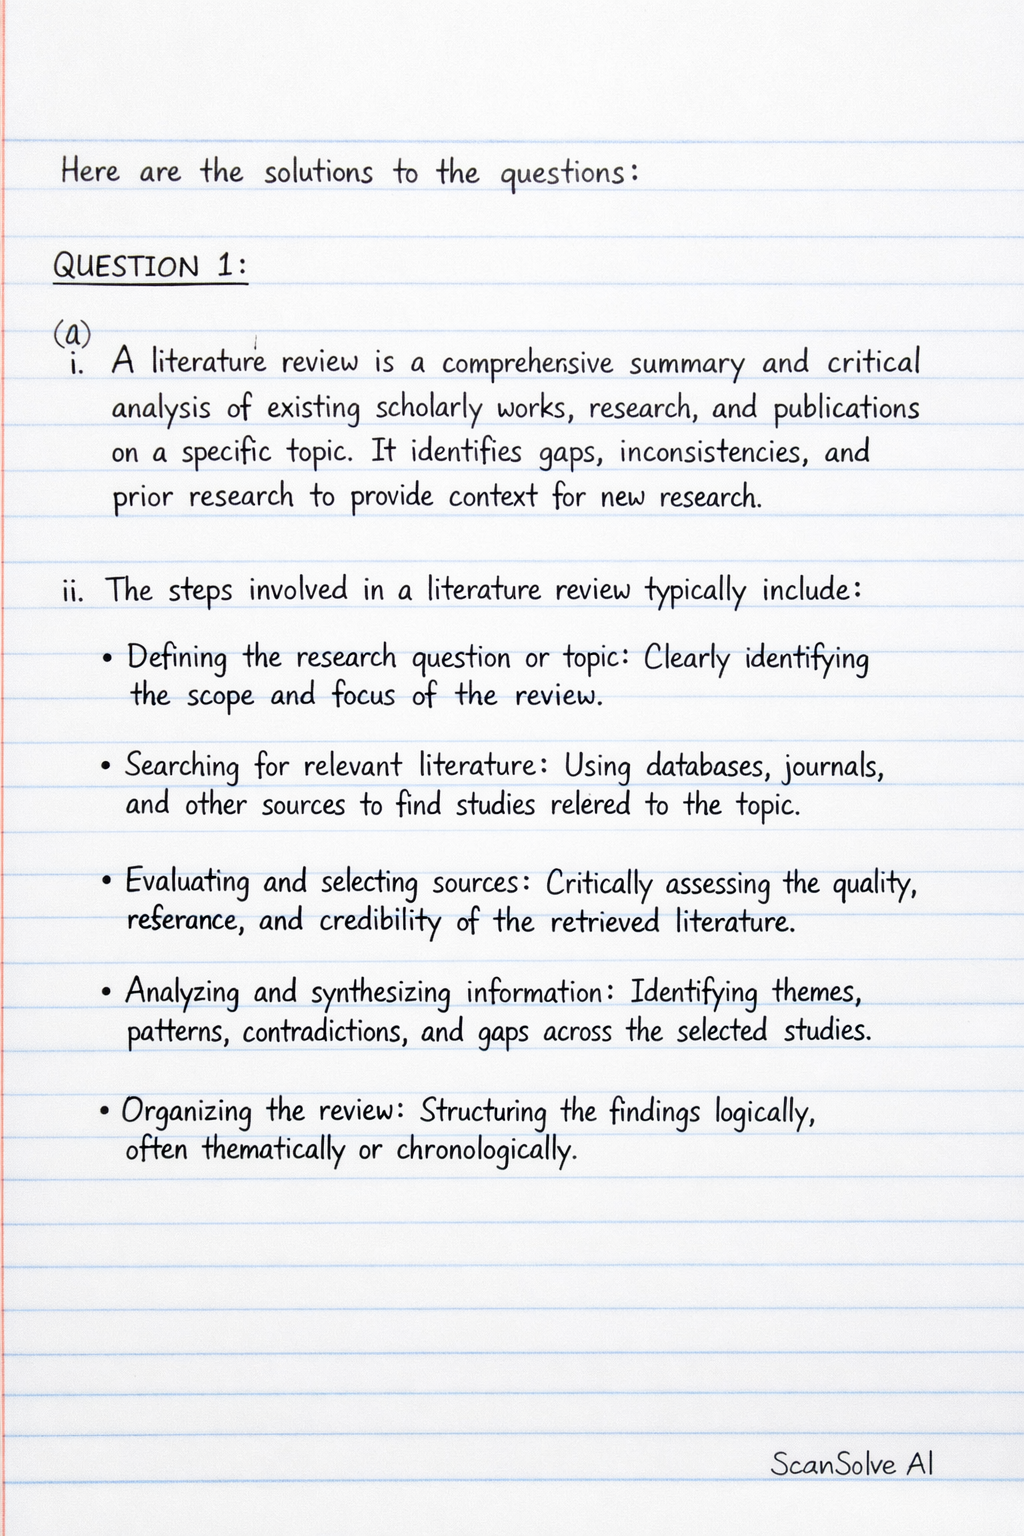 Here are the solutions to the questions:
QUESTION 1:
(a)
i. A literature review is a comprehensive summary and critical
analysis of existing scholarly works, research, and publications
on a specific topic. It identifies gaps, inconsistencies, and
prior research to provide context for new research.
ii. The steps involved in a literature review typically include:
• Defining the research question or topic: Clearly identifying
the scope and focus of the review.
• Searching for relevant literature: Using databases, journals,
and other sources to find studies relered to the topic.
• Evaluating and selecting sources: Critically assessing the quality,
referance, and credibility of the retrieved literature.
• Analyzing and synthesizing information: Identifying themes,
patterns, contradictions, and gaps across the selected studies.
• Organizing the review: Structuring the findings logically,
often thematically or chronologically.
ScanSolve AI